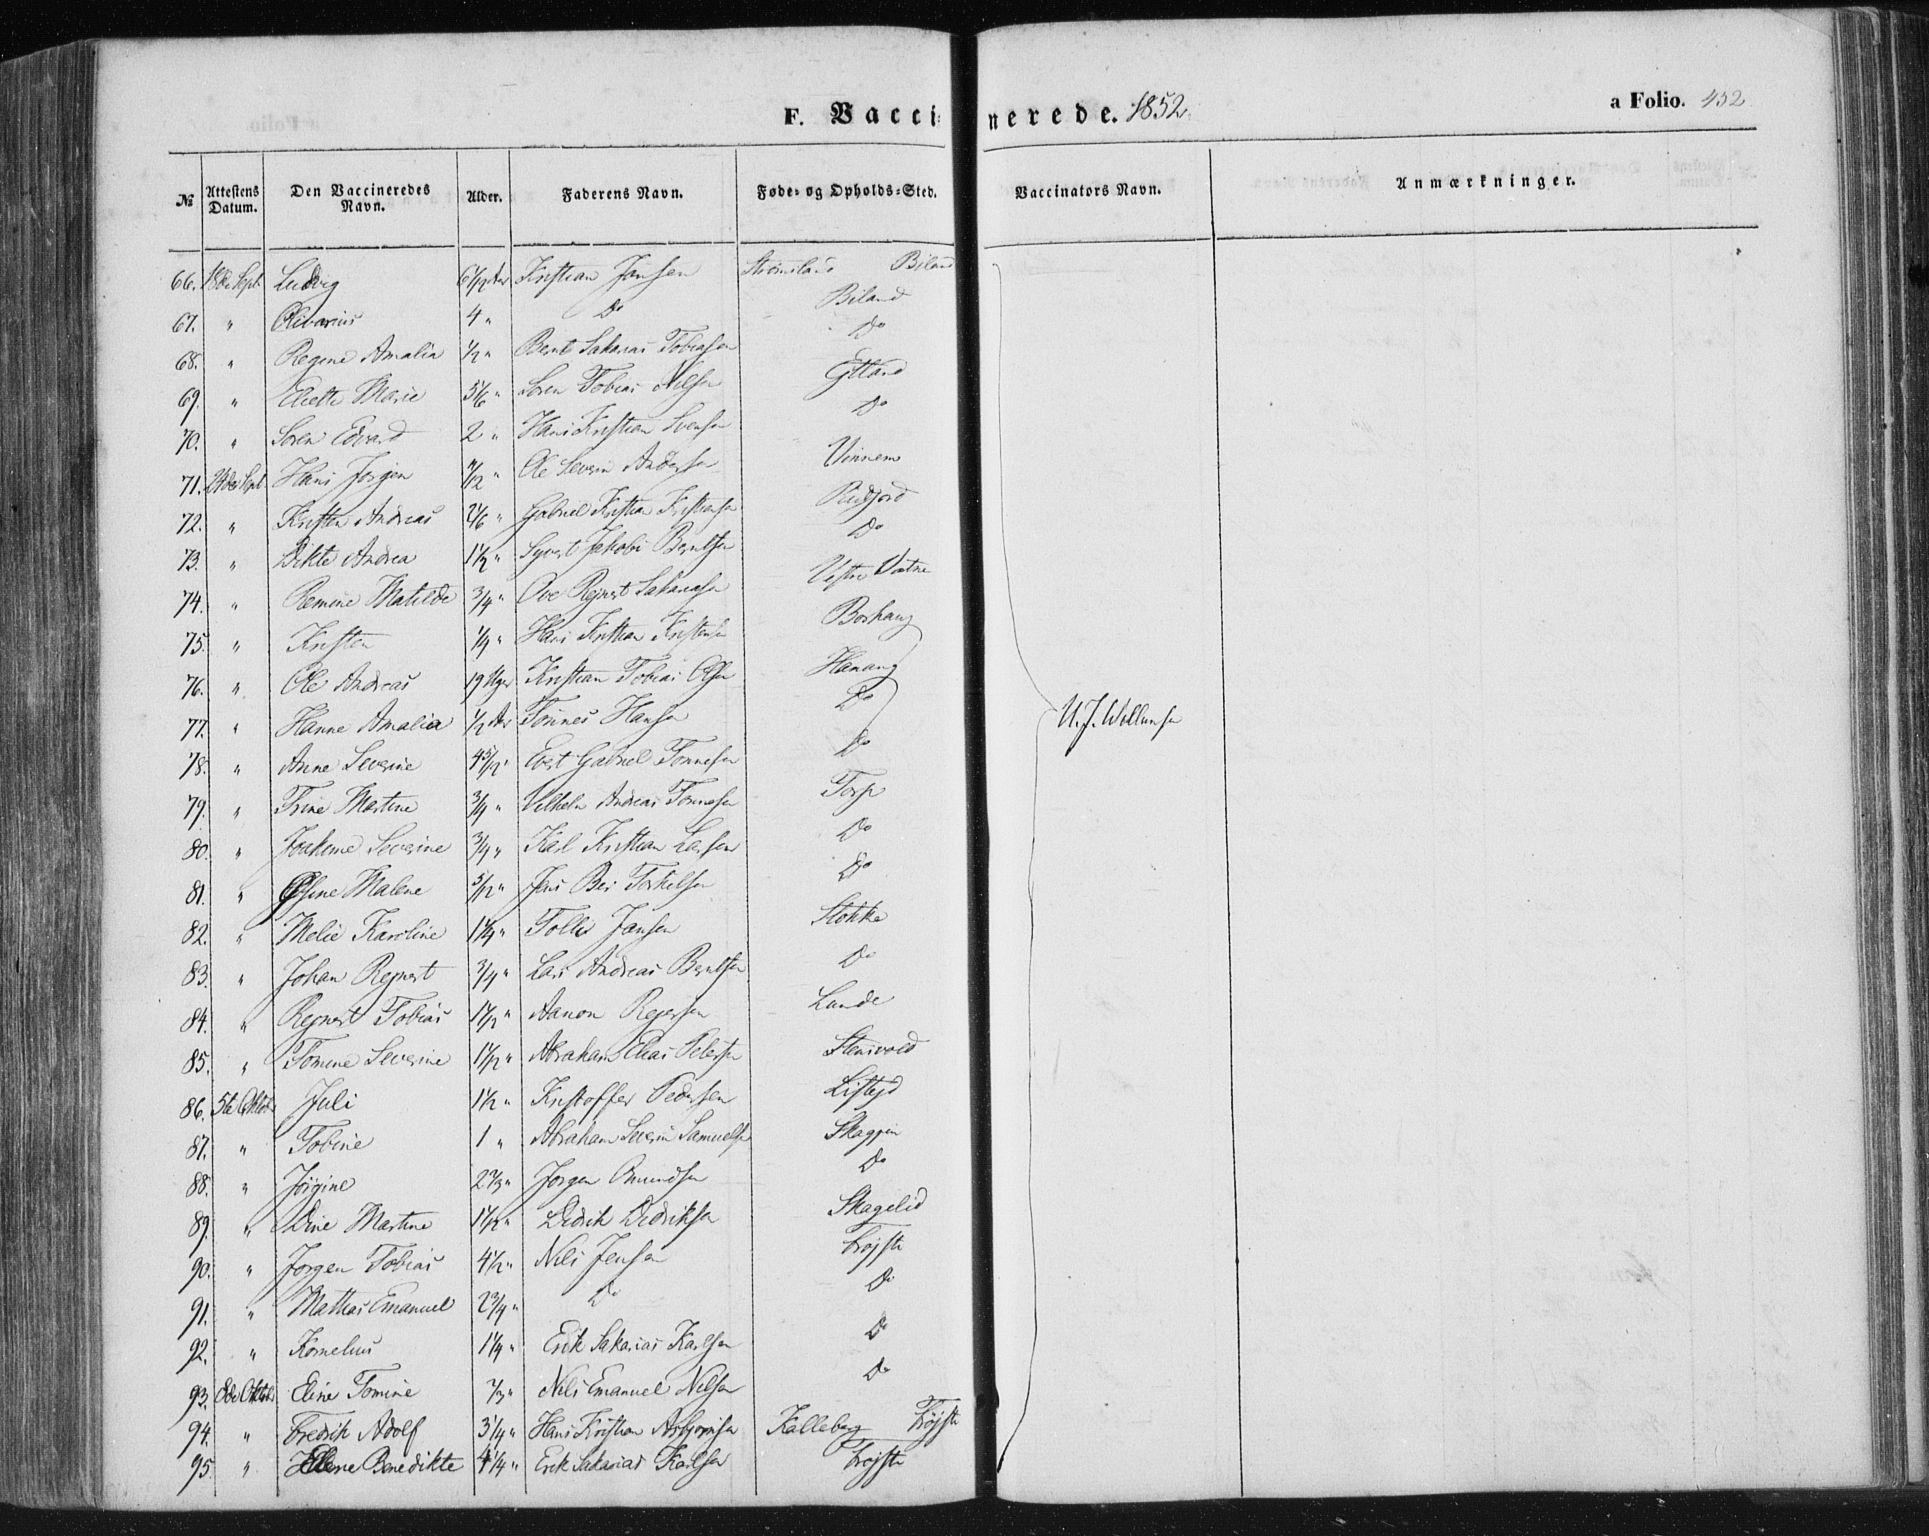 F. Vaccinerede. 1852.
a Folio. 452
№ Attestens Datum. Den Vaccineredes Navn. Alder. Faderens Navn. Føde- og Opholds-Sted. Vaccinators Navn. Anmærkninger.
66. 18de Sept. Ludvig 6 1/12 Aar Kristian Jansen Strømsland Biland
67. " Olivarius 4 " Do Biland
68. " Regine Amalia 1/2 " Bernt Sakarias Tobiasen Do
69. " Eliette Marie 5 1/6 " Søren Tobias Nilsen Gitland
70. " Søren Edvard 2 " Hans Kristian Svensen Do
71. 24de Sept Hans Jørgen 11/12 " Ole Severin Andersen Vinnem
72. " Kristen Andreas 2 1/6 " Gabriel Kristian Kristensen
73. " Dikte Andrea 1 1/2 " Syvert Jakobi Berntsen Do
74. " Remine Matilde 3/4 " Ove Rejnert Sakariasen Vestre Vatne
75. " Kristen 1/4 " Hans Kristian Kristensen Borhaug
76. " Ole Andreas 19 Uger Kristian Tobias Olsen Hanang
77. " Hanne Amalia 1/2 Aar Tønnes Hansen Do
78. " Anne Severine 4 5/12 " Evert Gabriel Tønnesen Do
79. " Trine Martine 3/4 " Vilhelm Andreas Tønnesen Torp
80. " Joakime Severine 3/4 " Karl Kristian Larsen Do
81. " Malene 5/12 " Jens Bei Torkelsen Do
82. " Melie Karoline 1 1/4 " Tollis Jansen Stokke
83. " Johan Rejnert 3/4 " Lars Andreas Berntsen Do
84. " Rejnert Tobias 1 1/2 " Aanon Rejersen Lande
85. " Tomine Severine 1 1/2 " Abraham Elias Pedersen Stensvold
86. 5te Oktob. Juli 1 1/2 " Kristoffer Pedersen Listejd
87. " Tobine 1 " Abraham Severin Samuelsen Skagpen
88. " Jørgine 2 2/3 " Jørgen Omundsen Do
89. " Dine Martine 1 1/2 " Didrik Didriksen Skagelid
90. " Jørgen Tobias 4 1/2 " Nils Jensen Trøjste
91. " Mathias Emanuel 2 3/4 " Do Do
92. " Kornelius 1 1/4 " Erik Sakarias Karlsen Do
93. 8de Oktob. Eline Tomine 2/3 " Nils Emanuel Nilsen Do
94. " Fredrik Adolf 3 1/4 " Hans Kristian Asbjørnsen Kalleberg Trøjste
95. " Ellene Benedikte 4 1/4 " Erik Sakarias Karlsen Trøjste
U. J. Willumsen